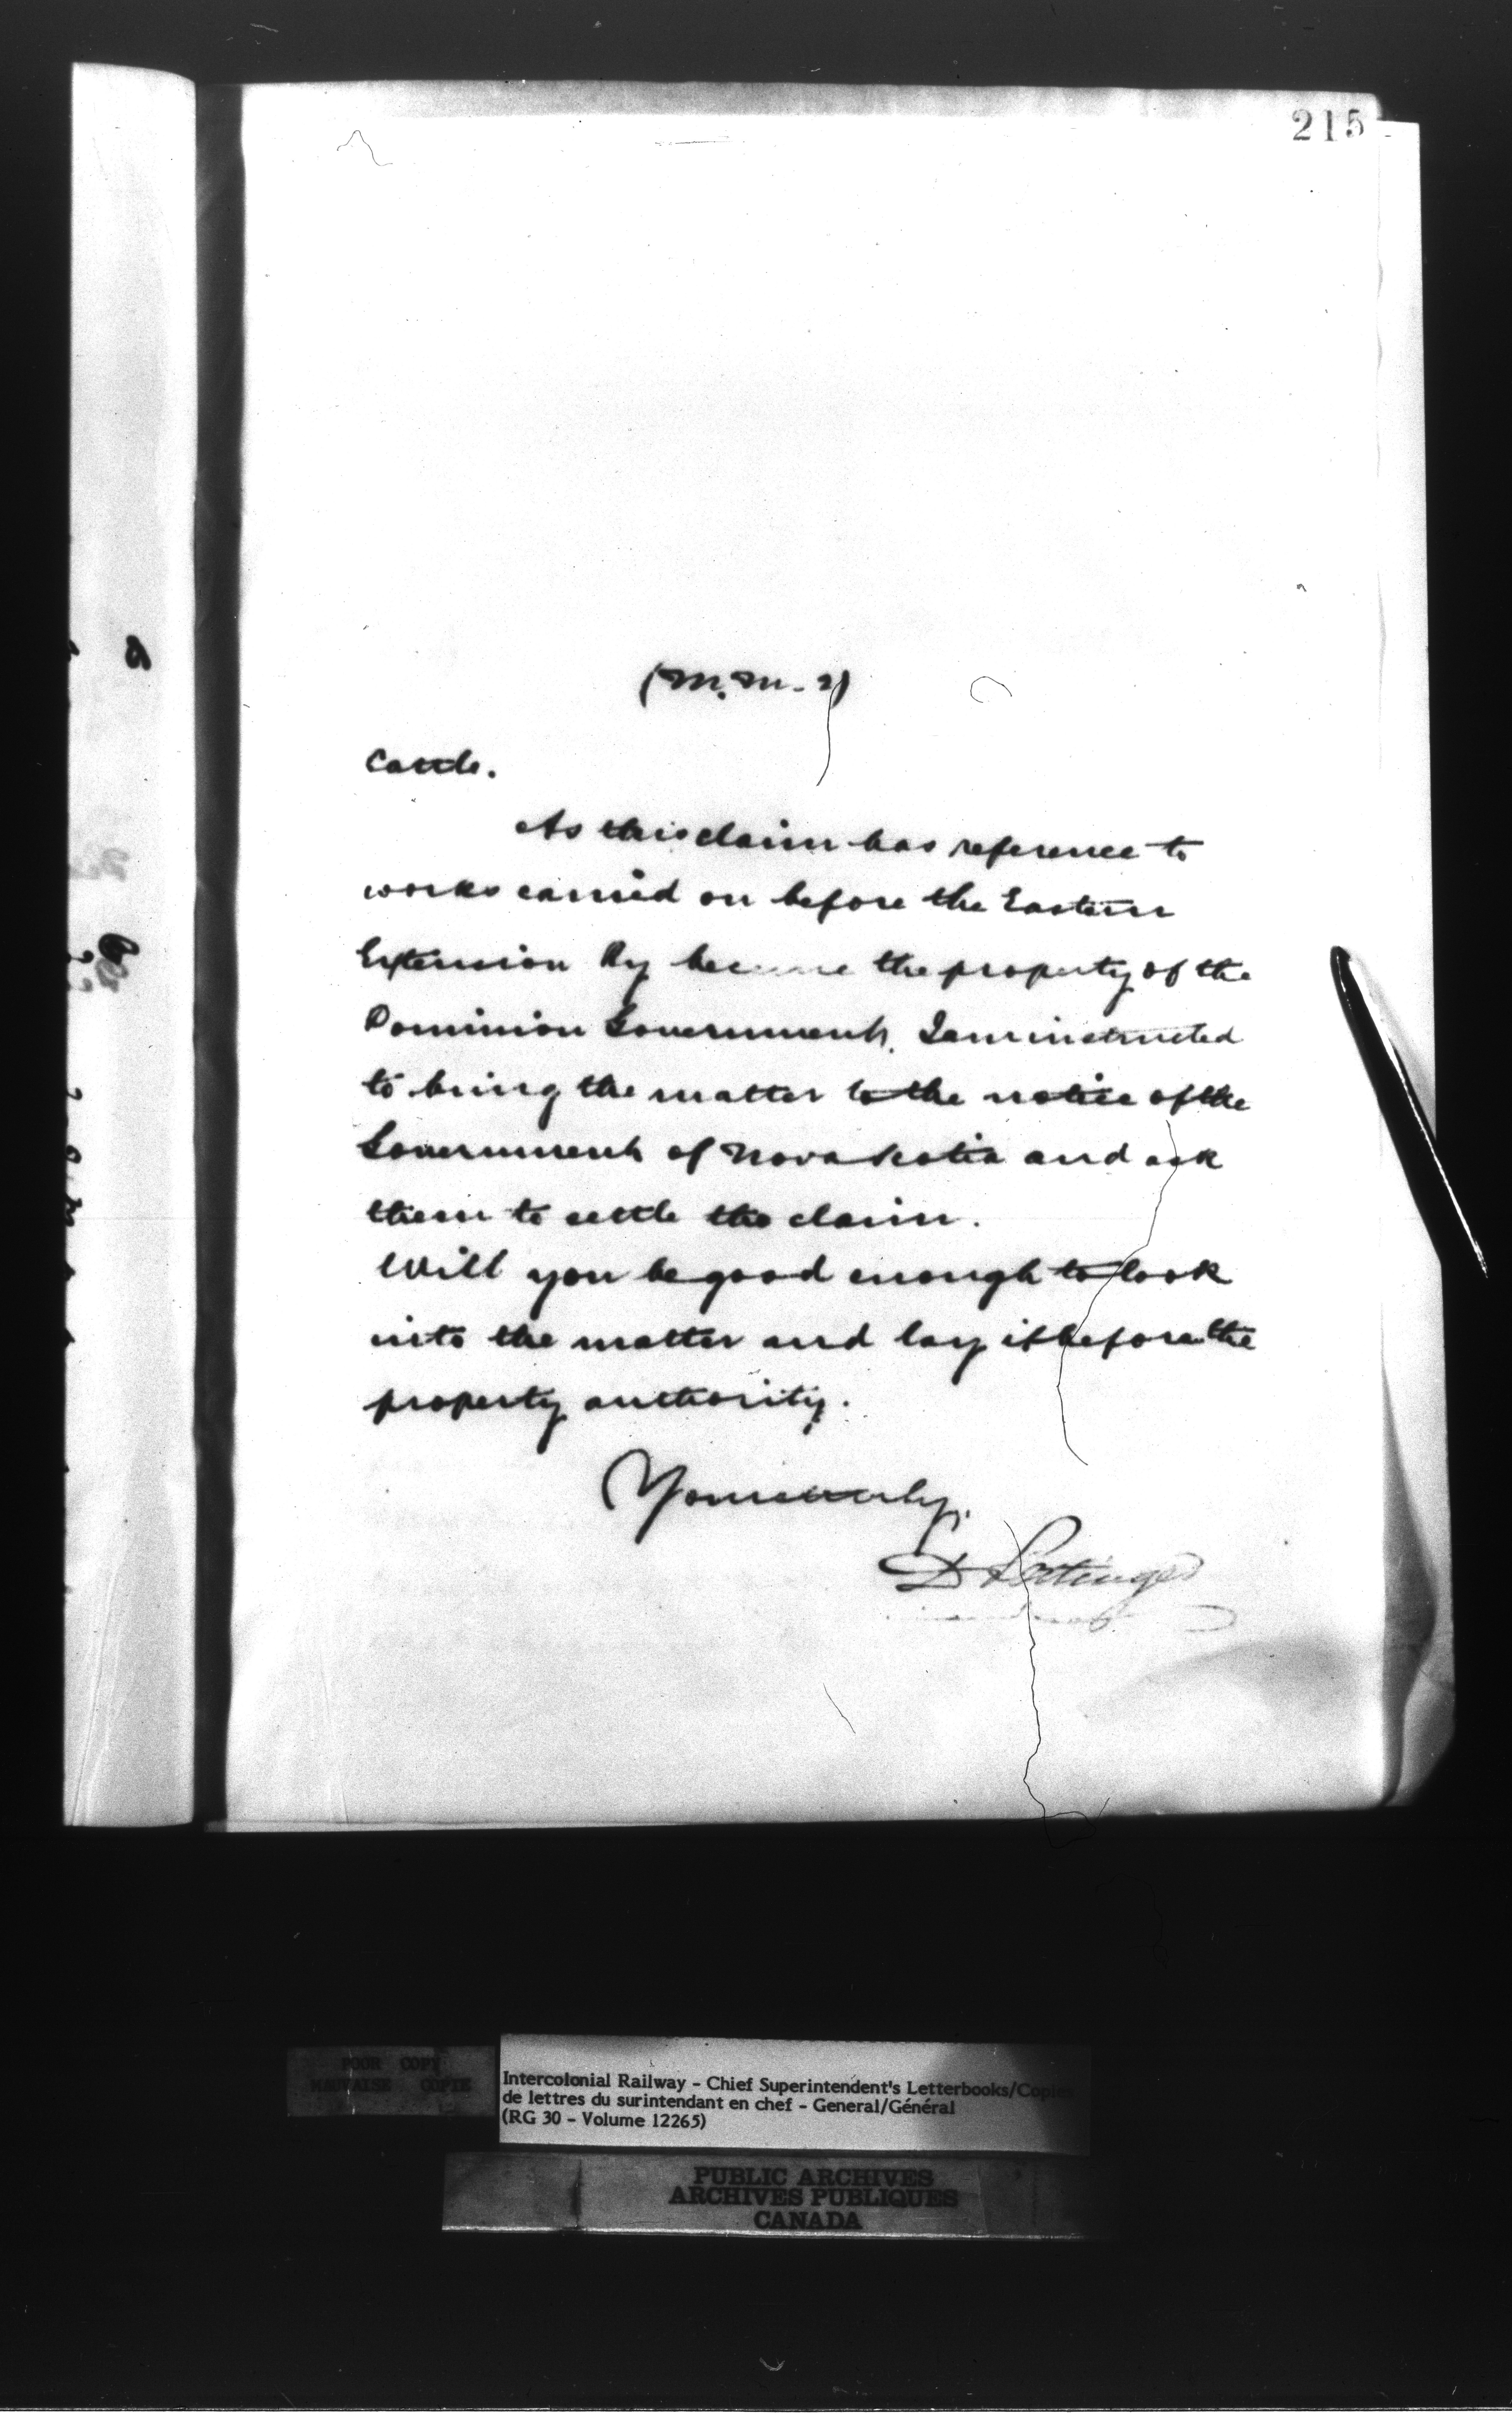 215
(M.M. - 2)
Cattle.
As this claim has reference to
works carried on before the Eastern
Extension Ry became the property of the
Dominion Government, I am instructed
to bring the matter to the notice of the
Government of Nova Scotia and ask
them to settle the claim.
Will you be good enough to look
into the matter and lay it before the
property authority.
Yours truly,
D Pottinger
POOR COPY
MAUVAISE COPIE
Intercolonial Railway - Chief Superintendent's Letterbooks/Copies
de lettres du surintendant en chef - General/Général
(RG 30 - Volume 12265)
PUBLIC ARCHIVES
ARCHIVES PUBLIQUES
CANADA